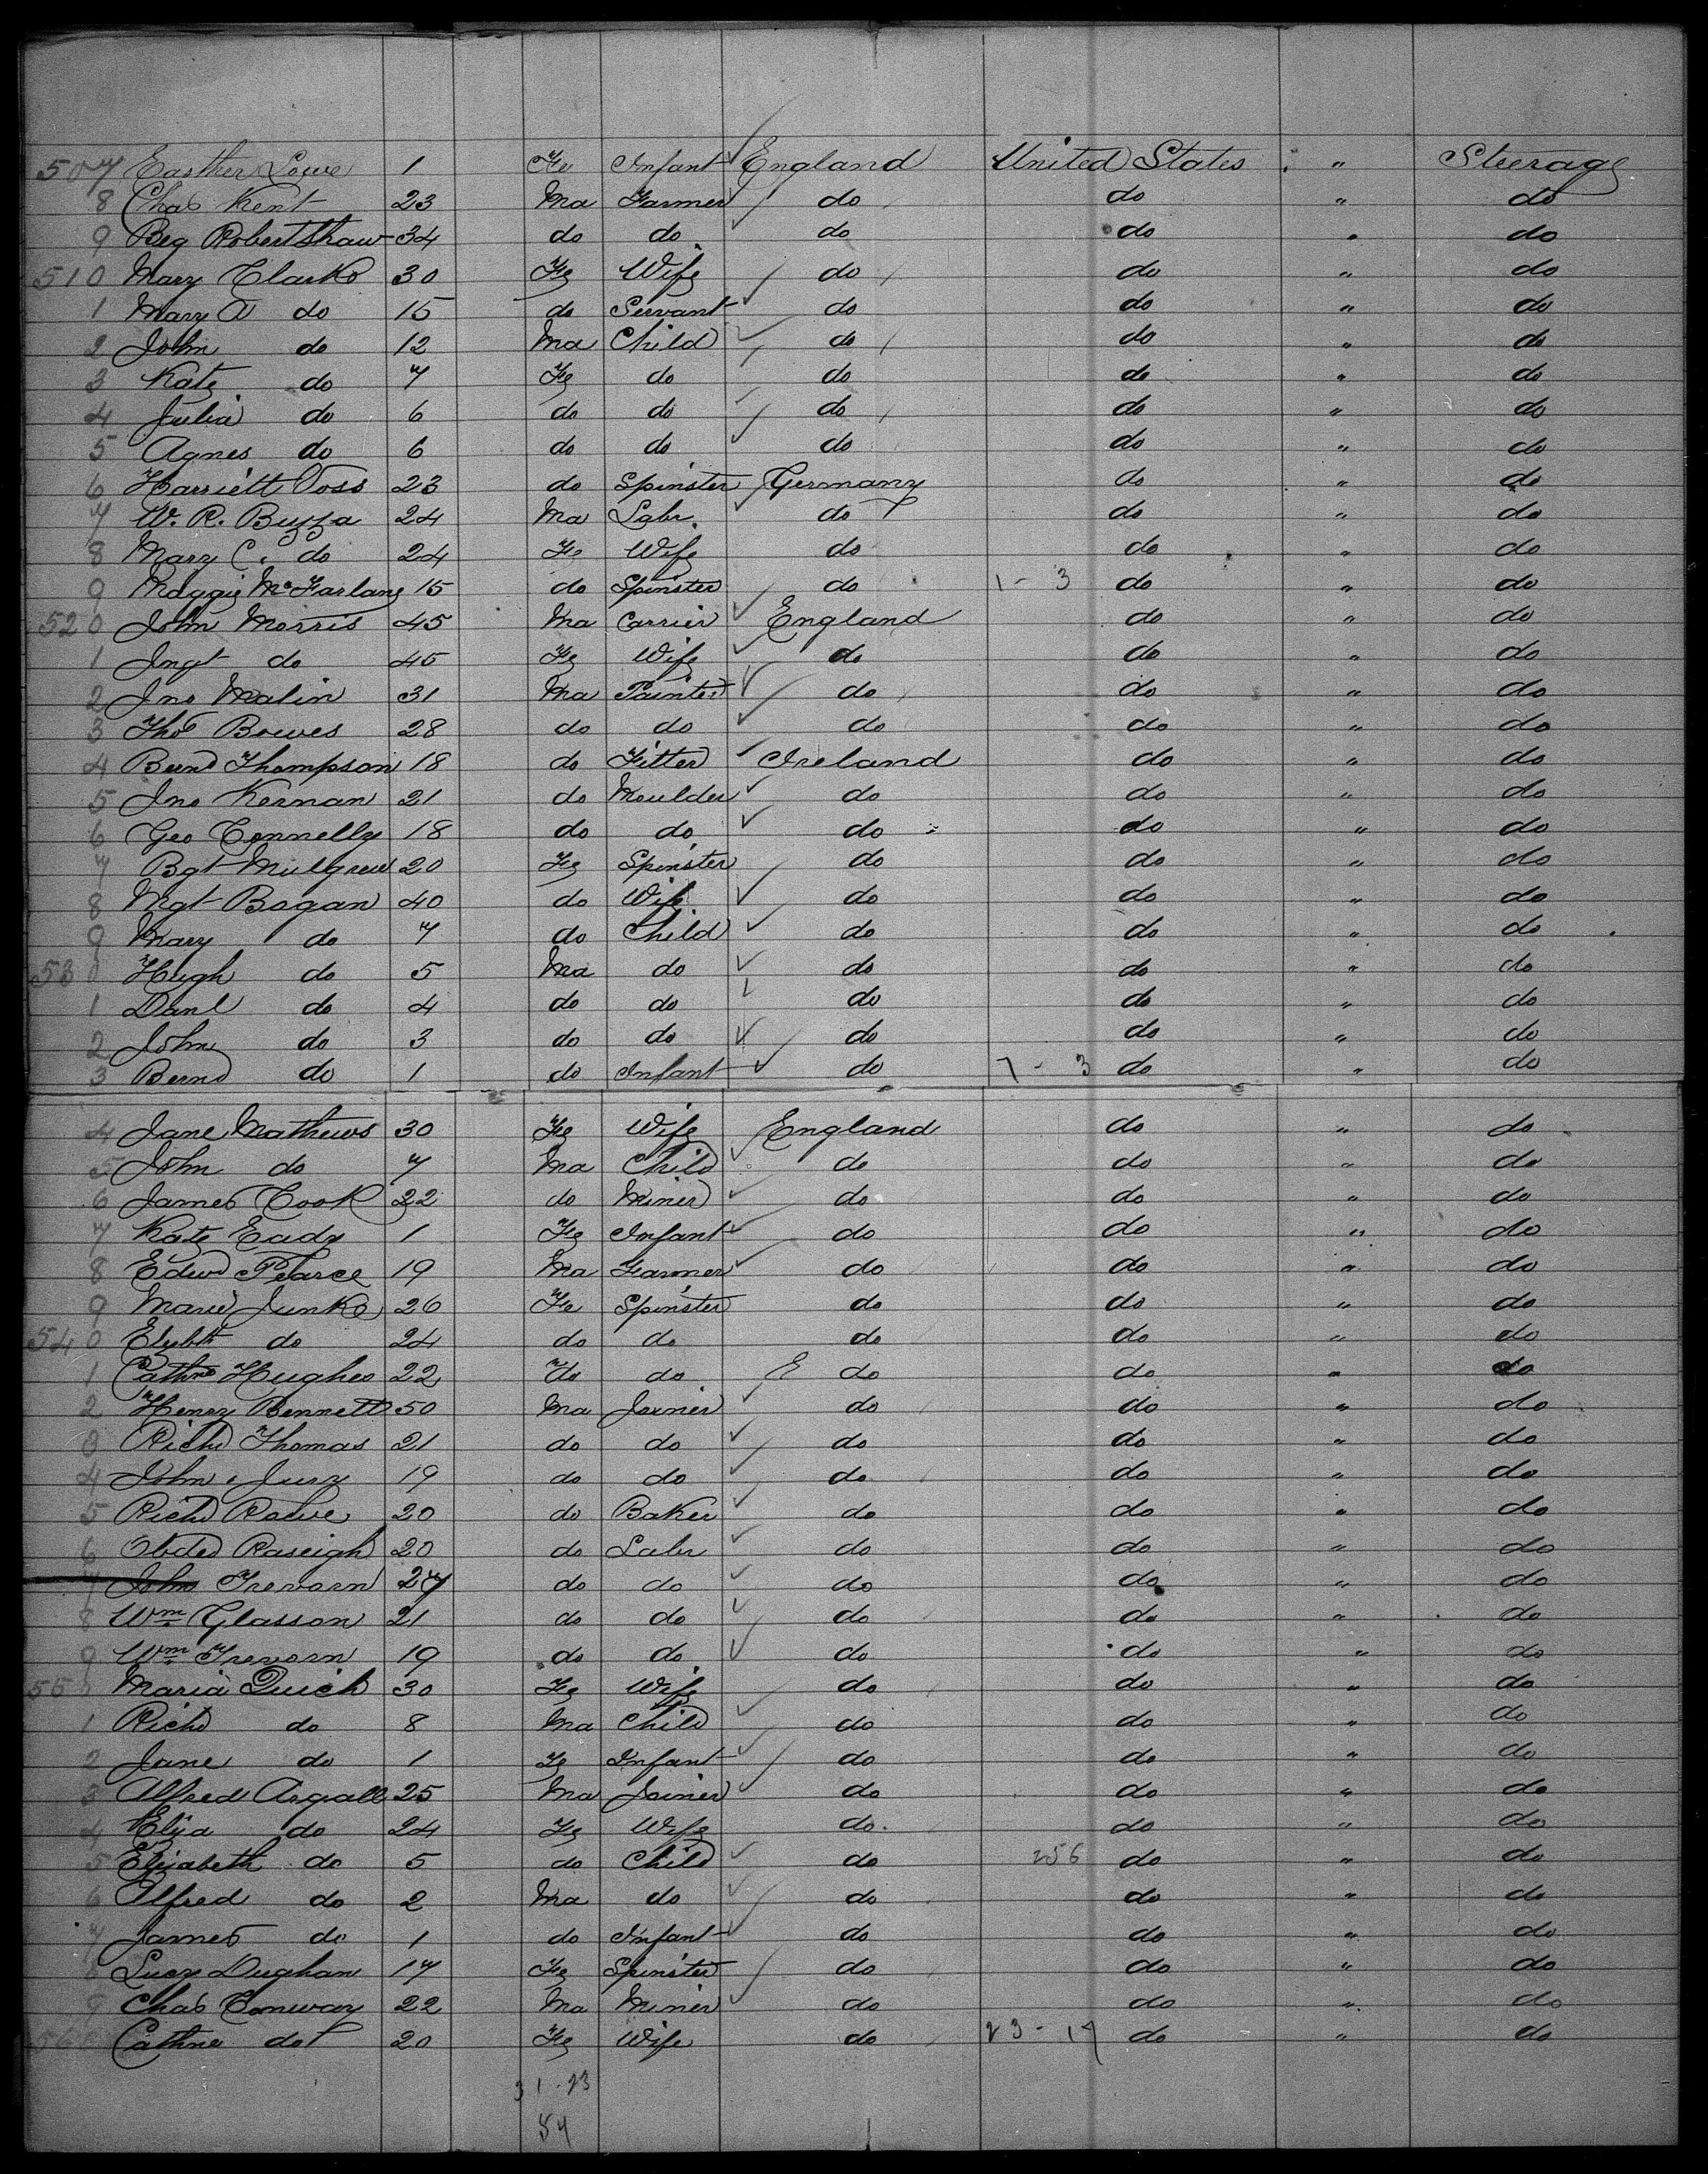 507 Easther Lowe 1 Fe Infant England United States " Steerage
8 Chas Kent 23 Ma Farmer do do " do
9 Beg Robertshaw 34 do do do do " do
510 Mary Clarke 30 Fe Wife do do " do
1 Mary A do 15 do Servant do do " do
2 John do 12 Ma Child do do " do
3 Kate do 7 Fe do do do " do
4 Julia do 6 do do do do " do
5 Agnes do 6 do do do do " do
6 Harriett Voss 23 do Spinster Germany do " do
7 W. R. Buzza 24 Ma Labr. do do " do
8 Mary C. do 24 Fe Wife do do " do
9 Maggie McFarlane 15 do Spinster do 1 - 3 do " do
520 John Morris 45 Ma Carrier England do " do
1 do 45 Fe Wife do do " do
2 Jno Malin 31 Ma Painter do do " do
3 Thos Bowes 28 do do do do " do
4 Bernd Thompson 18 do Fitter Ireland do " do
5 Jno Kernan 21 do Moulder do do " do
6 Geo Connelly 18 do do do do " do
7 Bgt Mulgrew 20 Fe Spinster do do " do
8 Mgt Bogan 40 do Wife do do " do
9 Mary do 7 do Child do do " do
530 Hugh do 5 Ma do do do " do
1 Danl do 4 do do do do " do
2 John do 3 do do do do " do
3 Bernd do 1 do Infant do 7 - 3 do " do
4 Jane Mathews 30 Fe Wife England do " do
5 John do 7 Ma Child do do " do
6 James Cook 22 do Miner do do " do
7 Kate Eady 1 Fe Infant do do " do
8 Edwd Pearce 19 Ma Farmer do do " do
9 Marie Junke 26 Fe Spinster do do " do
540 Elizbth do 24 do do do do " do
1 Cathne Hughes 22 do do E do do " do
2 Henry Bennett 50 Ma Joiner do do " do
3 Richd Thomas 21 do do do do " do
4 John Jury 19 do do do do " do
5 Richd Rowe 20 do Baker do do " do
6 Obded Raseigh 20 do Labr do do " do
7 John Trevorn 27 do do do do " do
8 Wm Glasson 21 do do do do " do
9 Wm Trevorn 19 do do do do " do
550 Maria Quick 30 Fe Wife do do " do
1 Richd do 8 Ma Child do do " do
2 Jane do 1 Fe Infant do do " do
3 Alfred Argall 25 Ma Joiner do do " do
4 Eliza do 24 Fe Wife do do " do
5 Elizabeth do 5 do Child do 256 do " do
6 Alfred do 2 Ma do do do " do
7 James do 1 do Infant do do " do
8 Lucy Dugham 17 Fe Spinster do do " do
9 Chas Conway 22 Ma Miner do do " do
560 Cathne do 20 Fe Wife do 23 - 17 do " do
31 - 23
54